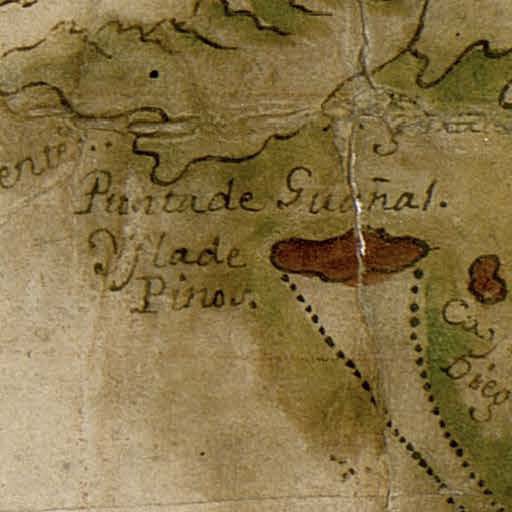 Punta de Guañal.
Yslade
Pinos.
Cay
Dieg